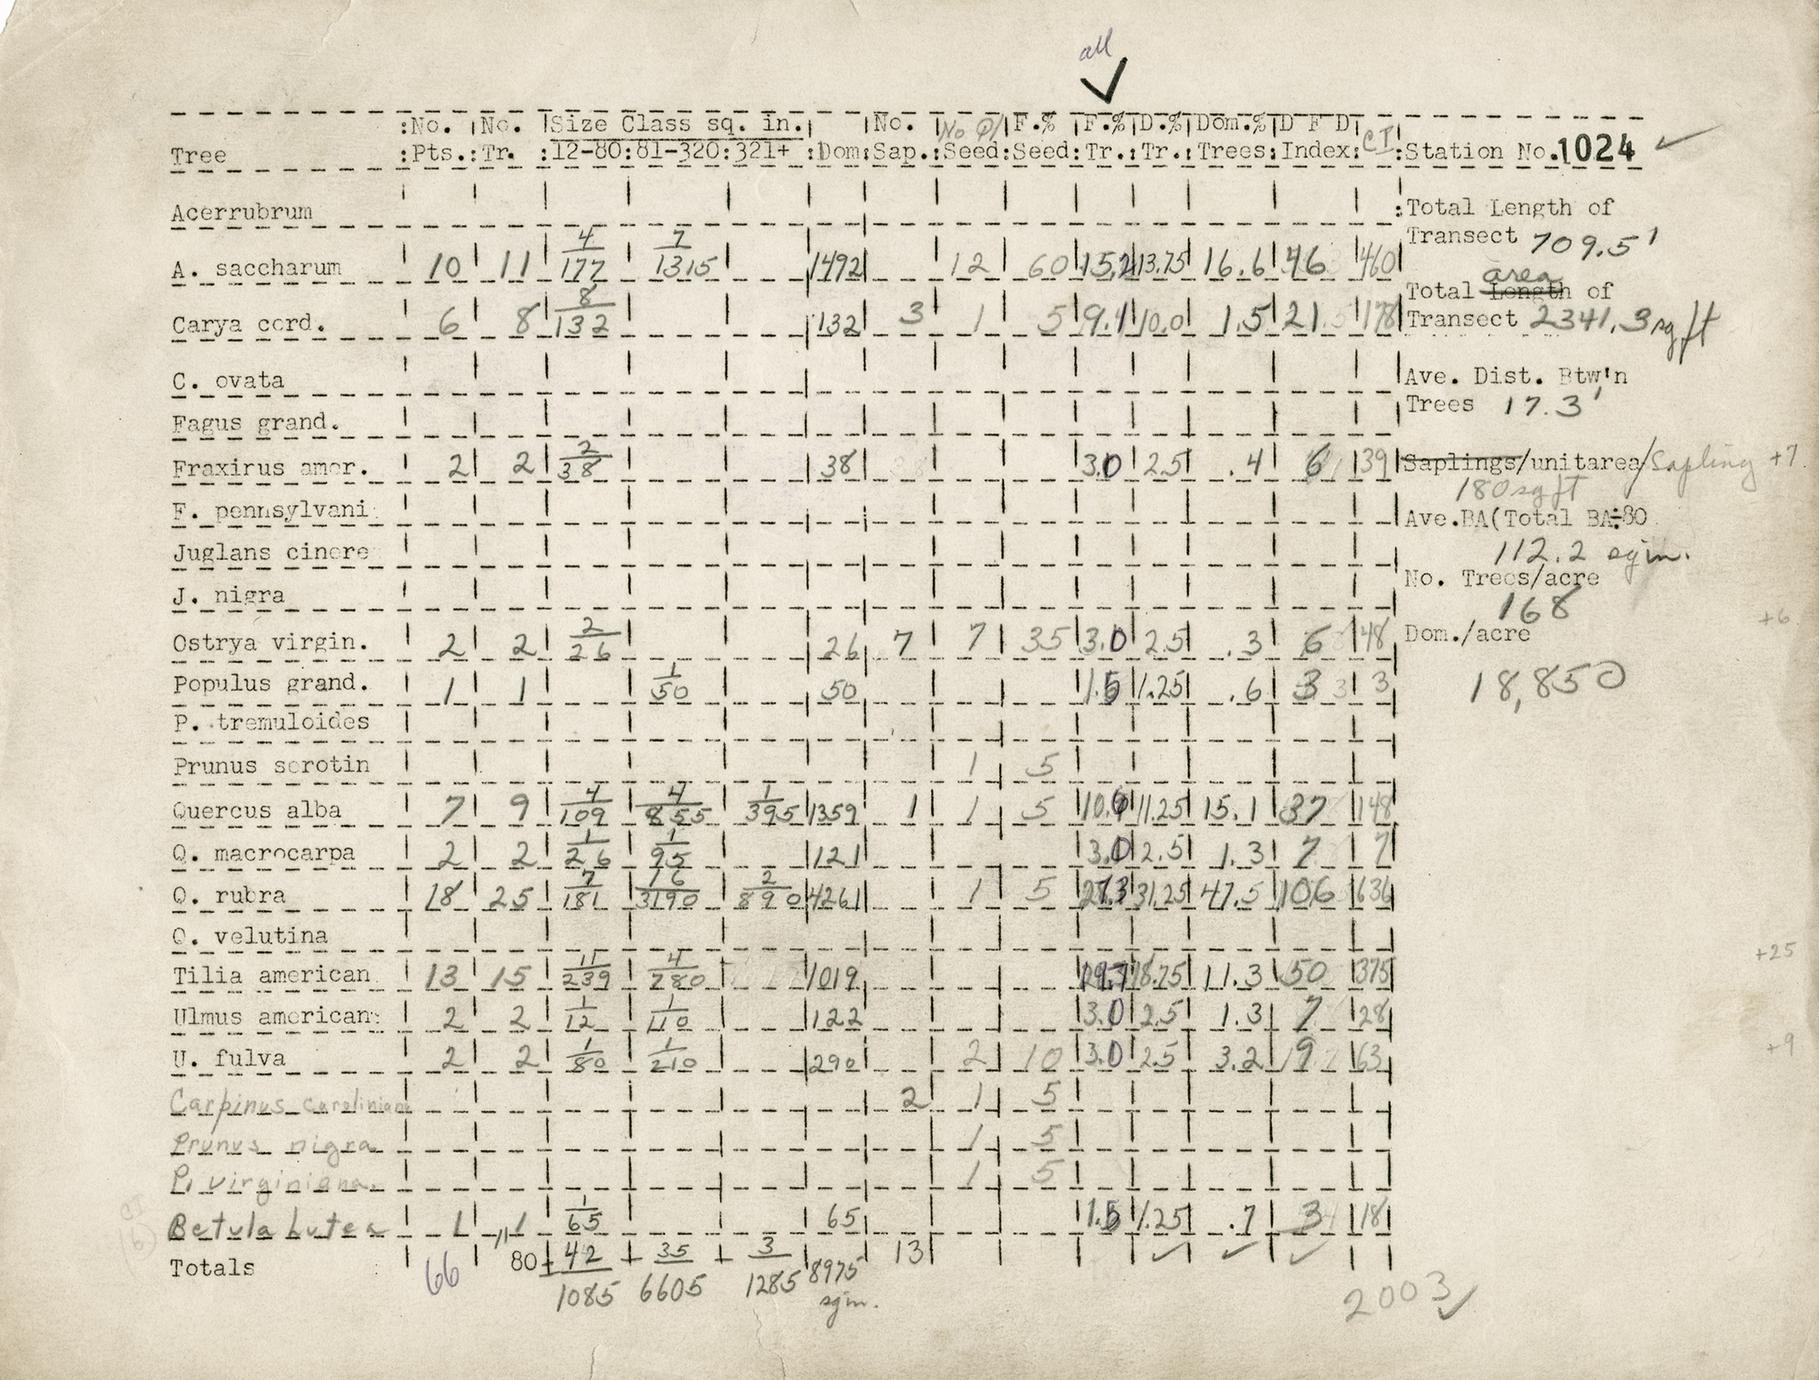 all
✓
:No. No. Size Class sq. in. No. No Q/ F.% F.% D.% Dom.% D F D
Tree :Pts.: Tr. :12-80:81-320:321+ :Dom:Sap.:Seed:Seed: Tr.: Tr.: Trees: Index: CI :Station No. 1024 ✓
Acerrubrum :Total Length of
Transect 709.5'
A. saccharum 10 11 4/177 7/1315 1492 12 60 15.2 13.75 16.6 46 460
Total Length area of
Carya cord. 6 8 8/132 132 3 1 5 9.1 10.0 1.5 21 178 Transect 2341.3 sq ft
C. ovata Ave. Dist. Btw'n
Trees 17.3'
Fagus grand.
Fraxirus amer. 2 2 2/38 38 3.0 2.5 .4 6 139 Saplings/unitarea/Sapling +7
180 sq ft
F. pennsylvani Ave.BA(Total BA÷80
Juglans cinere 112.2 sq in.
No. Trees/acre
J. nigra 168
+6
Ostrya virgin. 2 2 2/26 26 7 7 35 3.0 2.5 .3 6 48 Dom./acre
Populus grand. 1 1 1/50 50 1.5 1.25 .6 3 3 18,850
P. tremuloides
Prunus serotin 1 5
Quercus alba 7 9 4/109 4/855 1/395 1359 1 1 5 10.6 11.25 15.1 37 148
Q. macrocarpa 2 2 1/26 1/95 121 3.0 2.5 1.3 7 7
Q. rubra 18 25 7/181 16/3190 2/890 4261 1 5 27.3 31.25 47.5 106 636
Q. velutina
+25
Tilia american 13 15 11/239 4/780 1019 19.7 18.75 11.3 50 375
Ulmus american 2 2 1/12 1/110 122 3.0 2.5 1.3 7 28
U. fulva 2 2 1/80 1/210 290 2 10 3.0 2.5 3.2 9 63 +9
Carpinus caroliniana 2 1 5
Prunus nigra 1 5
P. virginiana 1 5
Betula Lutea 1 1 1/65 65 1.5 1.25 .7 3 18
Totals 66 80 42/1085 35/6605 3/1285 8975 13 ✓ ✓ ✓
sq in.
2003 ✓